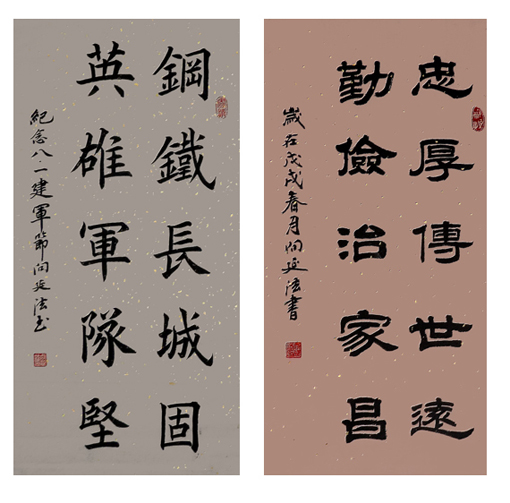 鋼鐵長城固
英雄軍隊堅
紀念八一建軍節延法书
忠厚傳世遠
勤儉治家昌
歲在戊戌春月延法書